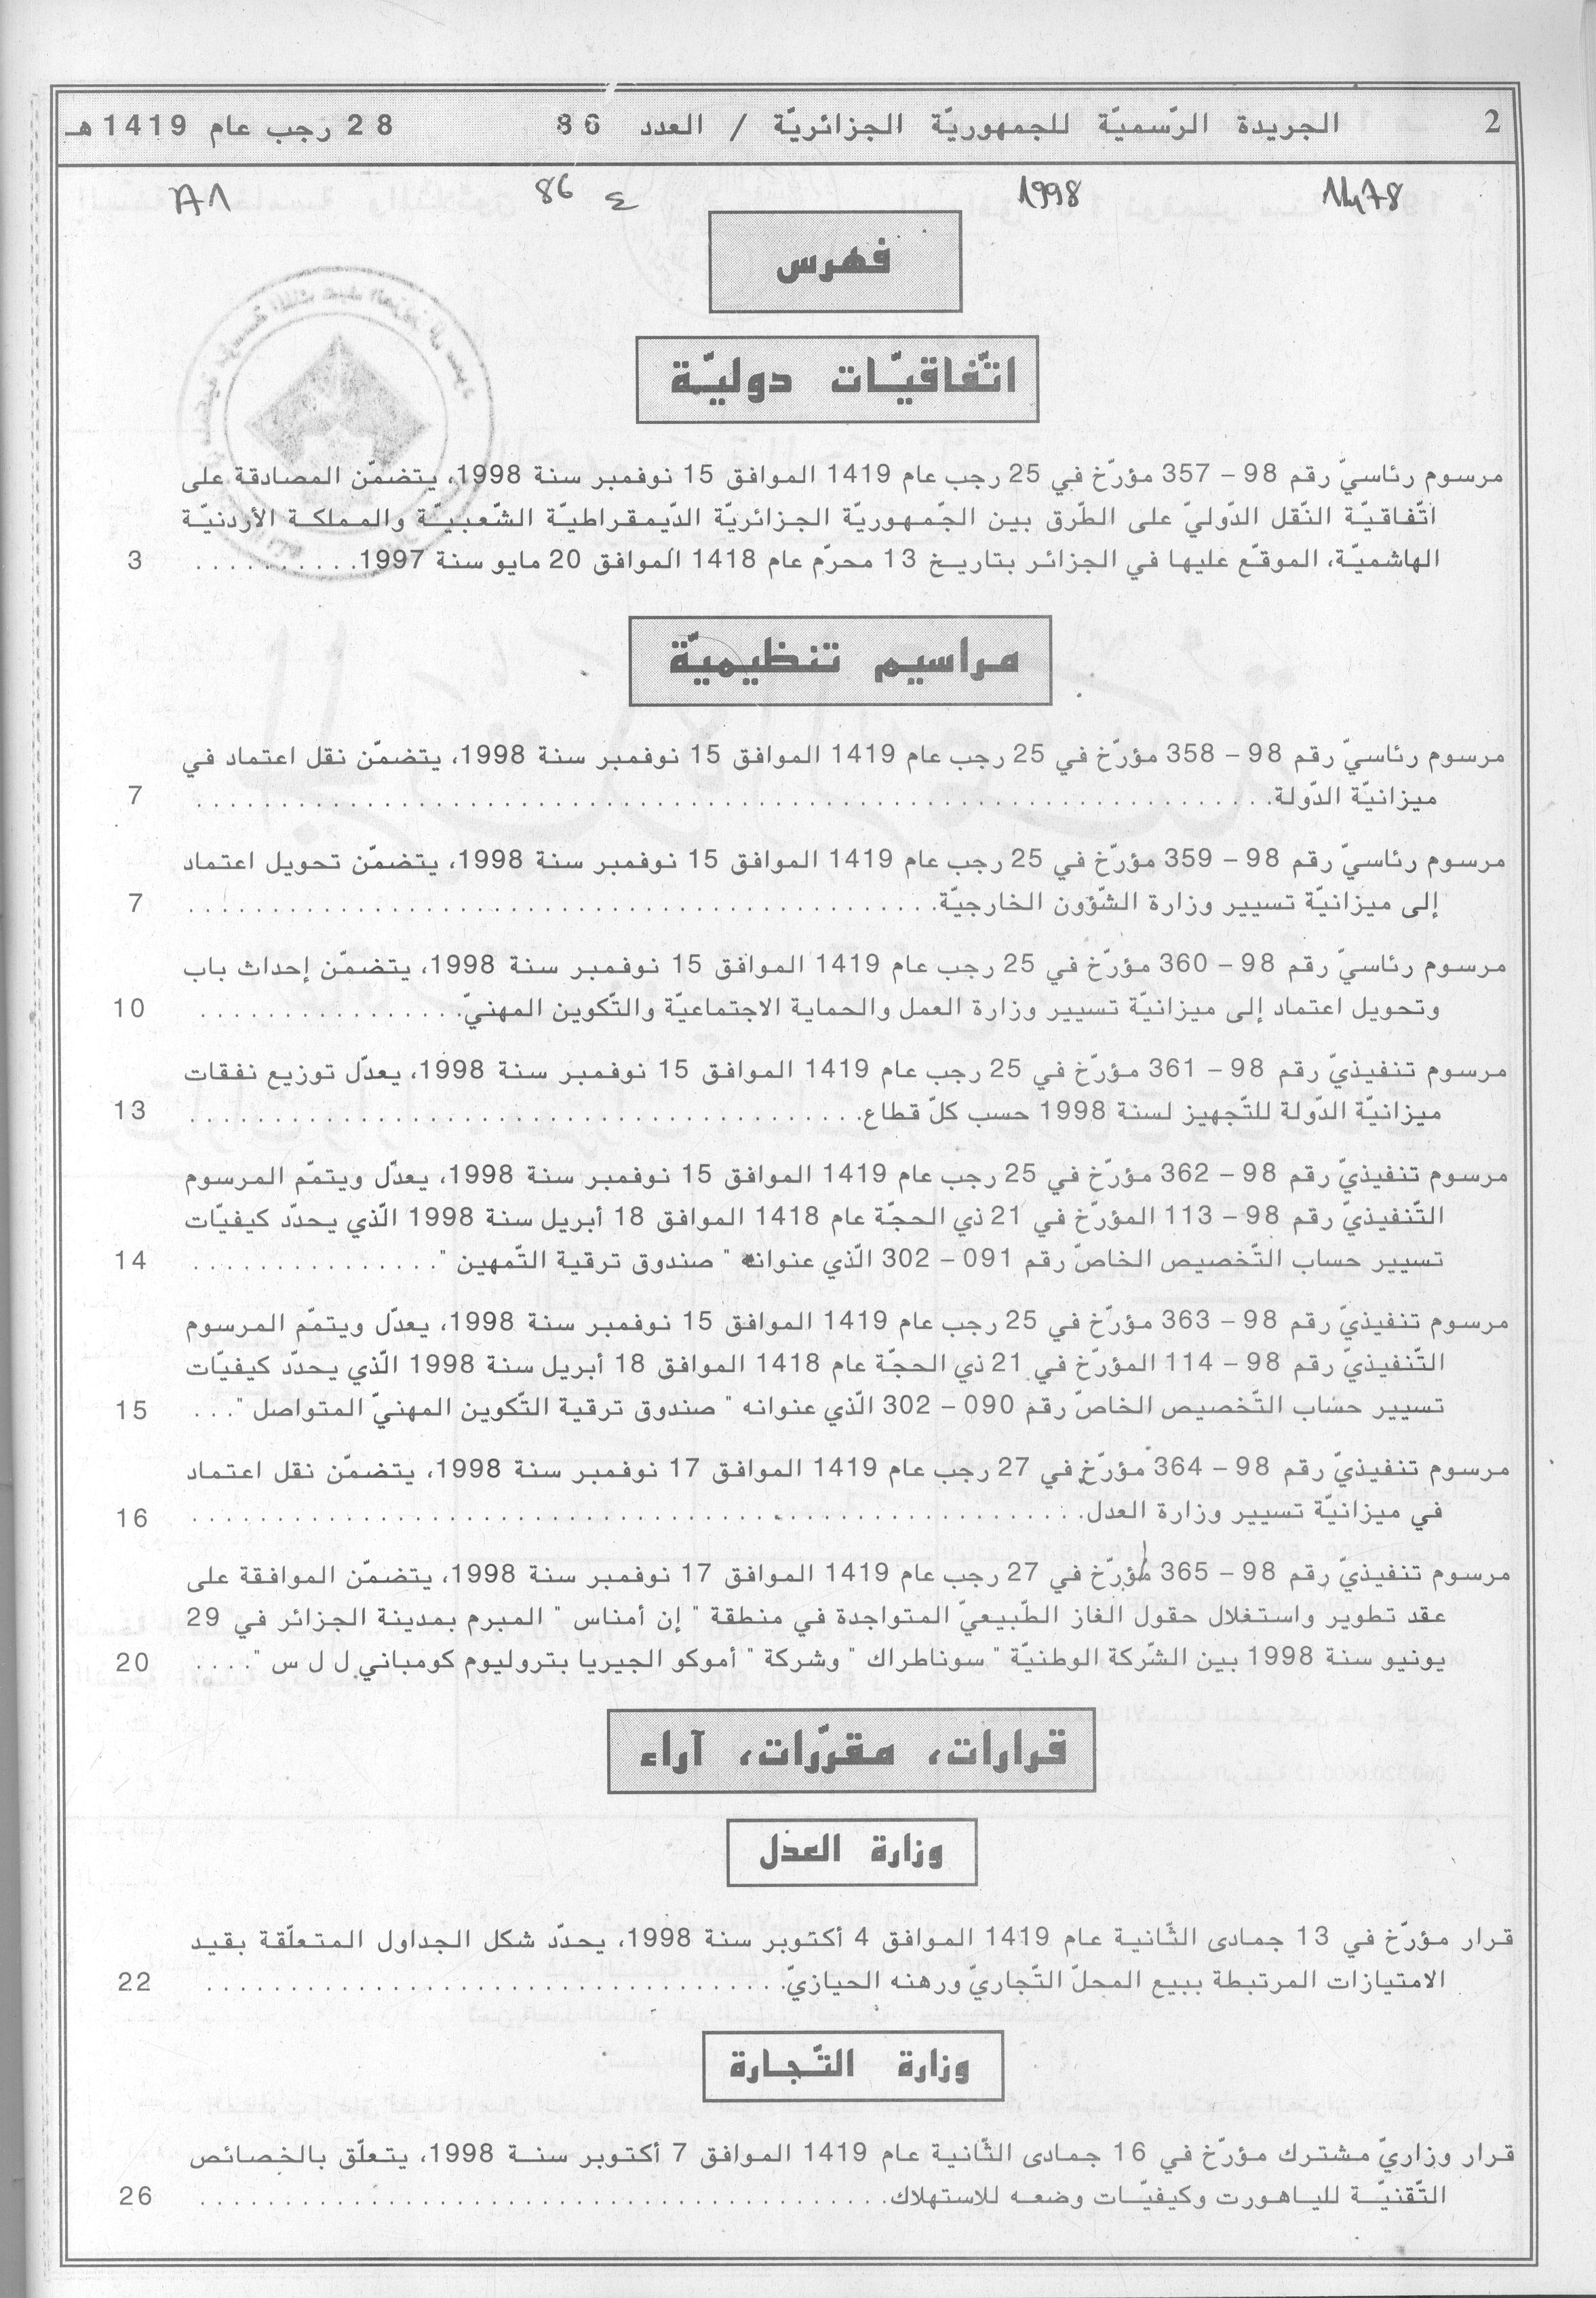 2 الجريدة الرّسميّة للجمهوريّة الجزائريّة / العدد 86 28 رجب عام 1419 هـ
1998 ع 86
فهرس
اتّفاقيّات دوليّة
مرسوم رئاسيّ رقم 98 – 357 مؤرّخ في 25 رجب عام 1419 الموافق 15 نوفمبر سنة 1998، يتضمّن المصادقة على
اتّفاقيّة النّقل الدّوليّ على الطّرق بين الجّمهوريّة الجزائريّة الدّيمقراطيّة الشّعبيّة والمملكة الأردنيّة
الهاشميّة، الموقّع عليها في الجزائر بتاريخ 13 محرّم عام 1418 الموافق 20 مايو سنة 1997........... 3
مراسيم تنظيميّة
مرسوم رئاسيّ رقم 98 – 358 مؤرّخ في 25 رجب عام 1419 الموافق 15 نوفمبر سنة 1998، يتضمّن نقل اعتماد في
ميزانيّة الدّولة................................................................ 7
مرسوم رئاسيّ رقم 98 – 359 مؤرّخ في 25 رجب عام 1419 الموافق 15 نوفمبر سنة 1998، يتضمّن تحويل اعتماد
إلى ميزانيّة تسيير وزارة الشّؤون الخارجيّة............................................. 7
مرسوم رئاسيّ رقم 98 – 360 مؤرّخ في 25 رجب عام 1419 الموافق 15 نوفمبر سنة 1998، يتضمّن إحداث باب
وتحويل اعتماد إلى ميزانيّة تسيير وزارة العمل والحماية الاجتماعيّة والتّكوين المهنيّ................ 10
مرسوم تنفيذيّ رقم 98 – 361 مؤرّخ في 25 رجب عام 1419 الموافق 15 نوفمبر سنة 1998، يعدّل توزيع نفقات
ميزانيّة الدّولة للتّجهيز لسنة 1998 حسب كلّ قطاع........................................ 13
مرسوم تنفيذيّ رقم 98 – 362 مؤرّخ في 25 رجب عام 1419 الموافق 15 نوفمبر سنة 1998، يعدّل ويتمّم المرسوم
التّنفيذيّ رقم 98 – 113 المؤرّخ في 21 ذي الحجّة عام 1418 الموافق 18 أبريل سنة 1998 الّذي يحدّد كيفيّات
تسيير حساب التّخصيص الخاصّ رقم 091 – 302 الّذي عنوانه " صندوق ترقية التّمهين "............... 14
مرسوم تنفيذيّ رقم 98 – 363 مؤرّخ في 25 رجب عام 1419 الموافق 15 نوفمبر سنة 1998، يعدّل ويتمّم المرسوم
التّنفيذيّ رقم 98 – 114 المؤرّخ في 21 ذي الحجّة عام 1418 الموافق 18 أبريل سنة 1998 الّذي يحدّد كيفيّات
تسيير حساب التّخصيص الخاصّ رقم 090 – 302 الّذي عنوانه " صندوق ترقية التّكوين المهنيّ المتواصل ".... 15
مرسوم تنفيذيّ رقم 98 – 364 مؤرّخ في 27 رجب عام 1419 الموافق 17 نوفمبر سنة 1998، يتضمّن نقل اعتماد
في ميزانيّة تسيير وزارة العدل..................................................... 16
مرسوم تنفيذيّ رقم 98 – 365 مؤرّخ في 27 رجب عام 1419 الموافق 17 نوفمبر سنة 1998، يتضمّن الموافقة على
عقد تطوير واستغلال حقول الغاز الطّبيعيّ المتواجدة في منطقة " إن أمناس " المبرم بمدينة الجزائر في 29
يونيو سنة 1998 بين الشّركة الوطنيّة " سوناطراك " وشركة " أموكو الجيريا بتروليوم كومباني ل ل س ".... 20
قرارات، مقرّرات، آراء
وزارة العدل
قرار مؤرّخ في 13 جمادى الثّانية عام 1419 الموافق 4 أكتوبر سنة 1998، يحدّد شكل الجداول المتعلّقة بقيد
الامتيازات المرتبطة ببيع المحلّ التّجاريّ ورهنه الحيازيّ.................................... 22
وزارة التّجارة
قرار وزاريّ مشترك مؤرّخ في 16 جمادى الثّانية عام 1419 الموافق 7 أكتوبر سنة 1998، يتعلّق بالخصائص
التّقنيّة للياهورت وكيفيّات وضعه للاستهلاك.......................................... 26